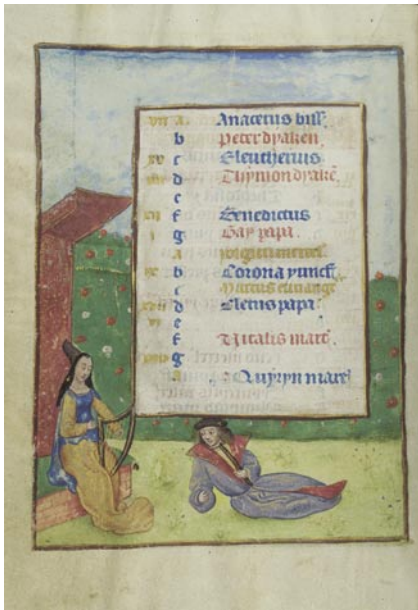 vii a Anacetus biss.
b Peter dyaken.
xv c Eleutherius
d Thymon dyake
e
xii f Benedictus
i g Gay papa.
a
ix b Corona yuncf.
c Marcus
xvii d Cletus papa.
vi e
f Vitalis mart.
g
a Quyryn mart